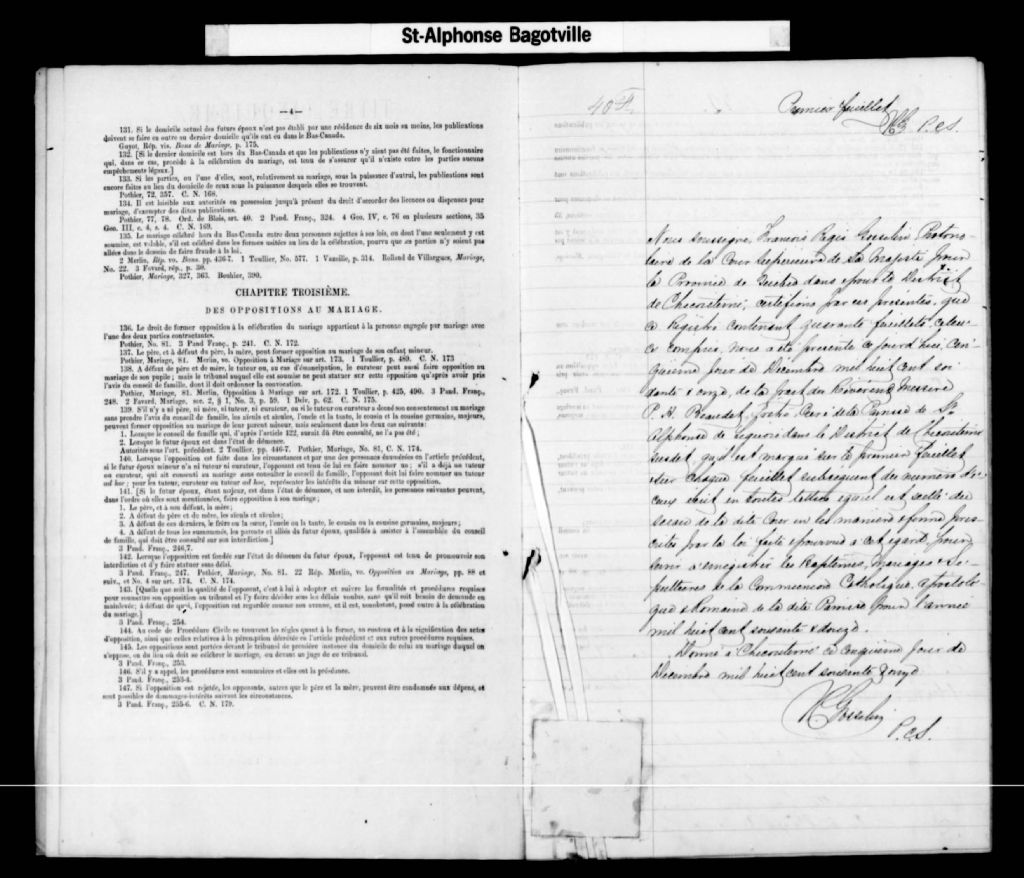 St-Alphonse Bagotville
—4—
131. Si le domicile actuel des futurs époux n'est pas établi par une résidence de six mois au moins, les publications
doivent se faire en outre au dernier domicile qu'ils ont eu dans le Bas-Canada.
Guyot, Rép. vis. Bans de Mariage, p. 175.
132. [Si le dernier domicile est hors du Bas-Canada et que les publications n'y aient pas été faites, le fonctionnaire
qui, dans ce cas, procède à la célébration du mariage, est tenu de s'assurer qu'il n'existe entre les parties aucuns
empêchements légaux.]
133. Si les parties, ou l'une d'elles, sont, relativement au mariage, sous la puissance d'autrui, les publications sont
encore faites au lieu du domicile de ceux sous la puissance desquels elles se trouvent.
Pothier, 72, 357. C. N. 168.
134. Il est loisible aux autorités en possession jusqu'à présent du droit d'accorder des licences ou dispenses pour
mariage, d'exempter des dites publications.
Pothier, 77, 78. Ord. de Blois, art. 40. 2 Pand. Franç., 324. 4 Geo. IV, c. 76 en plusieurs sections, 35
Geo. III, c. 4, s. 4. C. N. 169.
135. Le mariage célébré hors du Bas-Canada entre deux personnes sujettes à ses lois, ou dont l'une seulement y est
soumise, est valable, s'il est célébré dans les formes usitées au lieu de la célébration, pourvu que les parties n'y soient pas
allées dans le dessein de faire fraude à la loi.
2 Merlin, Rép. vo. Bans. pp. 436-7. 1 Toullier, No. 577. 1 Vazeille, p. 314. Rolland de Villargues, Mariage,
No. 22. 3 Favard, rép., p. 30.
Pothier, Mariage, 327, 363. Bouhier, 390.
CHAPITRE TROISIÈME.
DES OPPOSITIONS AU MARIAGE.
136. Le droit de former opposition à la célébration du mariage appartient à la personne engagée par mariage avec
l'une des deux parties contractantes.
Pothier, No. 81. 3 Pand Franç., p. 241. C. N. 172.
137. Le père, et à défaut du père, la mère, peut former opposition au mariage de son enfant mineur.
Pothier, Mariage, 81. Merlin, vo. Opposition à Mariage sur art. 173. 1 Toullier, p. 489. C. N. 173
138. A défaut de père et de mère, le tuteur ou, au cas d'émancipation, le curateur peut aussi faire opposition au
mariage de son pupile; mais le tribunal auquel elle est soumise ne peut statuer sur cette opposition qu'après avoir pris
l'avis du conseil de famille, dont il doit ordonner la convocation.
Pothier, Mariage, 81. Merlin, Opposition à Mariage sur art. 172. 1 Toullier, p. 425, 490. 3 Pand. Franç.,
248. 2 Favard, Mariage, sec. 2, § 1, No. 3, p. 59. 1 Delv, p. 62. C. N. 175.
139. S'il n'y a ni père, ni mère, ni tuteur, ni curateur, ou si le tuteur ou curateur a donné son consentement au mariage
sans prendre l'avis du conseil de famille, les aïeuls et aïeules, l'oncle et la tante, le cousin et la cousine germains, majeurs,
peuvent former opposition au mariage de leur parent mineur, mais seulement dans les deux cas suivants:
1. Lorsque le conseil de famille qui, d'après l'article 122, aurait dû être consulté, ne l'a pas été;
2. Lorsque le futur époux est dans l'état de démence.
Autorités sous l'art. précédent. 2 Toullier, pp. 446-7. Pothier, Mariage, No. 81, C. N. 174.
140. Lorsque l'opposition est faite dans les circonstances et par une des personnes énumérées en l'article précédent,
si le futur époux mineur n'a ni tuteur ni curateur, l'opposant est tenu de lui en faire nommer un; s'il a déjà un tuteur
ou curateur, qui ait consenti au mariage sans consulter le conseil de famille, l'opposant doit lui faire nommer un tuteur
ad hoc; pour les tuteur, curateur ou tuteur ad hoc, représenter les intérêts du mineur sur cette opposition.
141. [Si le futur époux, étant majeur, est dans l'état de démence, et non interdit, les personnes suivantes peuvent,
dans l'ordre où elles sont mentionnées, faire opposition à son mariage;
1. Le père, et à son défaut, la mère;
2. A défaut de père et de mère, les aïeuls et aïeules;
3. A défaut de ces derniers, le frère ou la sœur, l'oncle ou la tante, le cousin ou la cousine germains, majeurs;
4. A défaut de tous les susnommés, les parents et alliés du futur époux, qualifiés à assister à l'assemblée du conseil
de famille, qui doit être consulté sur son interdiction.]
3 Pand. Franç., 246,7.
142. Lorsque l'opposition est fondée sur l'état de démence du futur époux, l'opposant est tenu de promouvoir son
interdiction et d'y faire statuer sans délai.
3 Pand. Franç., 247. Pothier, Mariage, No. 81. 22 Rép. Merlin, vo. Opposition au Mariage, pp. 88 et
suiv., et No. 4 sur art. 174. C. N. 174.
143. [Quelle que soit la qualité de l'opposant, c'est à lui à adopter et suivre les formalités et procédures requises
pour soumettre son opposition au tribunal et l'y faire décider sous les délais voulus, sans qu'il soit besoin de demande en
mainlevée; à défaut de quoi, l'opposition est regardée comme non avenue, et il est, nonobstant, passé outre à la célébration
du mariage.]
3 Pand. Franç., 254.
144. Au code de Procédure Civile se trouvent les règles quant à la forme, au contenu et à la signification des actes
d'opposition, ainsi que celles relatives à la péremption décrétée en l'article précédent et aux autres procédures requises.
145. Les oppositions sont portées devant le tribunal de première instance du domicile de celui au mariage duquel on
s'oppose, ou du lieu où doit se célébrer le mariage, ou devant un juge de ce tribunal.
3 Pand. Franç., 253.
146. S'il y a appel, les procédures sont sommaires et elles ont la préséance.
3 Pand. Franç., 253-4.
147. Si l'opposition est rejetée, les opposants, autres que le père et la mère, peuvent être condamnés aux dépens, et
sont passibles de dommages-intérêts suivant les circonstances.
3 Pand. Franç., 255-6. C. N. 179.
40 F.
Premier feuillet
P.C.S.
Nous soussigné, François Régis Gosselin Protono-
taire de la Cour Supérieure de Sa Majesté pour
la Province de Québec dans & pour le District
de Chicoutimi, certifions par ces présentes, que
ce Registre contenant quarante feuillets, celui-
ci compris, nous a été présenté ce jourd'hui, cin-
quième jour de Décembre mil huit cent soi-
xante & onze de la part du Révérend Messire
P. H. Beaudet, Prêtre, Curé de la Paroisse de St.
Alphonse de Liguori dans le District de Chicoutimi
susdit, qu'il est marqué sur le premier feuillet
& sur chaque feuillet subséquent du numéro d'i-
ceux écrit en toutes lettres & qu'il est scellé du
sceau de la dite Cour en la manière & forme pres-
crites par la loi faite & pourvue à cet égard, pour
servir à enregistrer les Baptêmes, Mariages & Sé-
pultures de la Communion Catholique, Apostoli-
que & Romaine de la dite Paroisse pour l'année
mil huit cent soixante & douze.
Donné à Chicoutimi ce cinquième jour de
Décembre mil huit cent soixante & onze
R Gosselin
P.C.S.